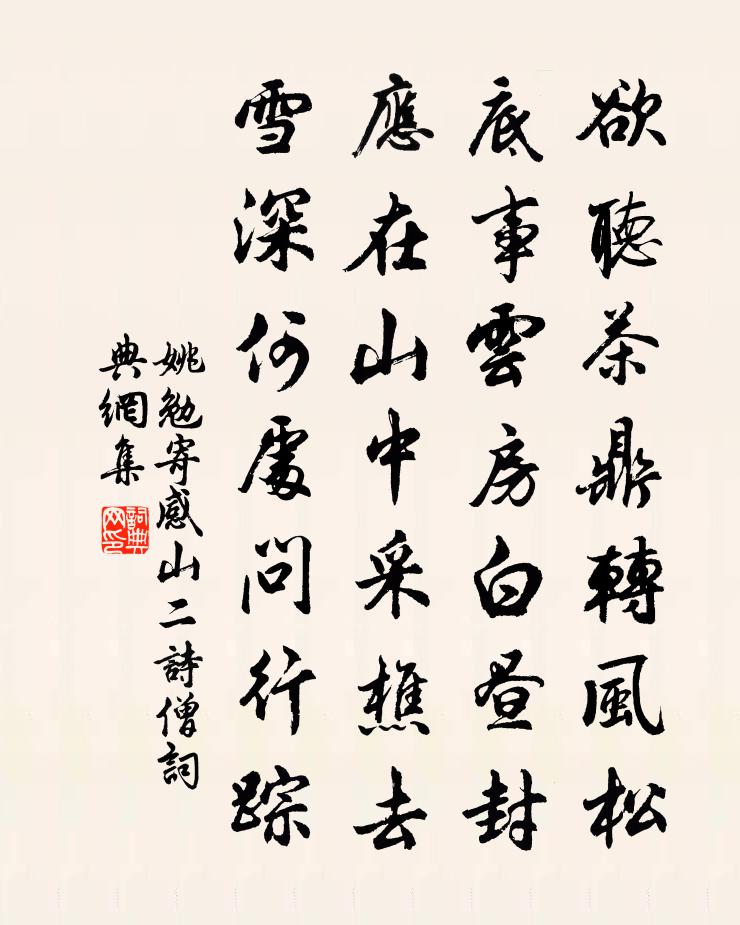 欲聽茶鼎轉風松
底事雲房白晝封
應在山中采樵去
雪深何處問行踪
姚勉寄感山二詩僧詞
典網集
詞典
网印